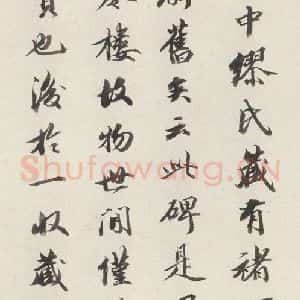 中繆氏藏有褚
舊矣云此碑是
樓故物世間僅
也後於一收藏
Shufawang.CN